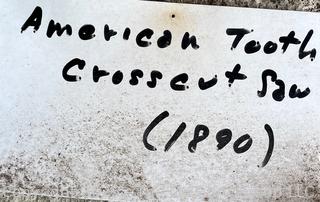 American Tooth
Crosscut Saw
(1890)